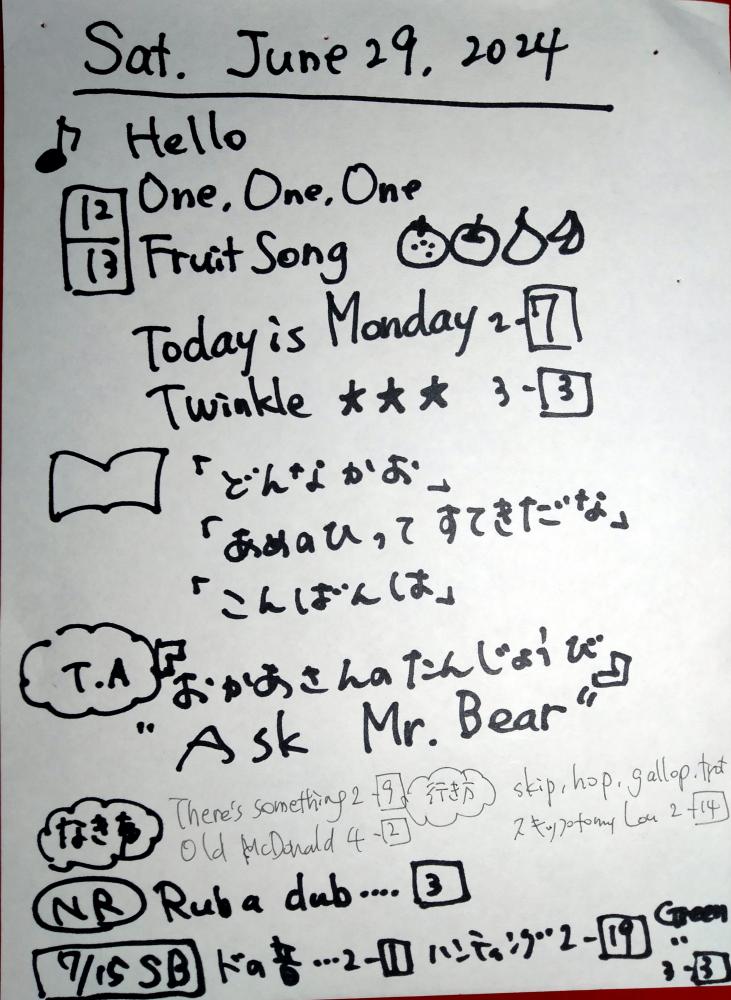 Sat. June 29, 2024
Hello
12 One, One, One
13 Fruit Song
Today is Monday 2-7
Twinkle ★★★ 3-3
「どんなかお」
「あめのひってすてきだな」
「こんばんは」
T.A 『おかあさんのたんじょうび』
"Ask Mr. Bear"
なき声 There's something 2-9 行き方 skip, hop, gallop, trot
Old McDonald 4-2 スキップ to my Lou 2-14
NR Rub a dub.... 3
7/15 SB ドの音...2-11 ハンティング 2-19 Green 〃 3-3